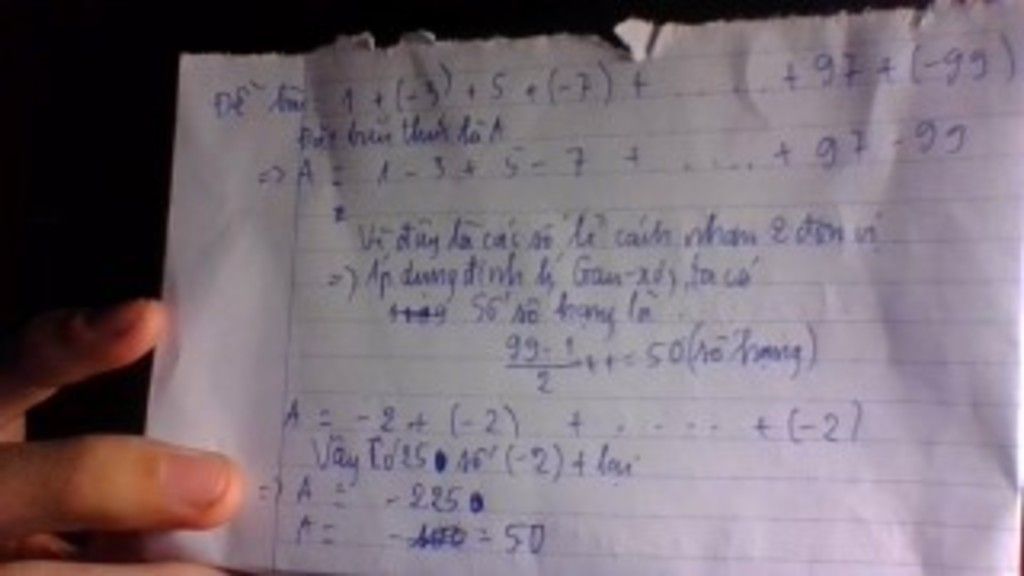 Đề bài: 1 + (-3) + 5 + (-7) + ..... + 97 + (-99)
Đặt biểu thức là A
=> A = 1 - 3 + 5 - 7 + ..... + 97 - 99
Vì đây là các số lẻ cách nhau 2 đơn vị
=> Áp dụng định lí Gau-xơ, ta có
số số hạng là
99-1/2 + 1 = 50 (số hạng)
A = -2 + (-2) + ..... + (-2)
Vậy có 25 số (-2) + lại
=> A = -2.25
A = - = 50